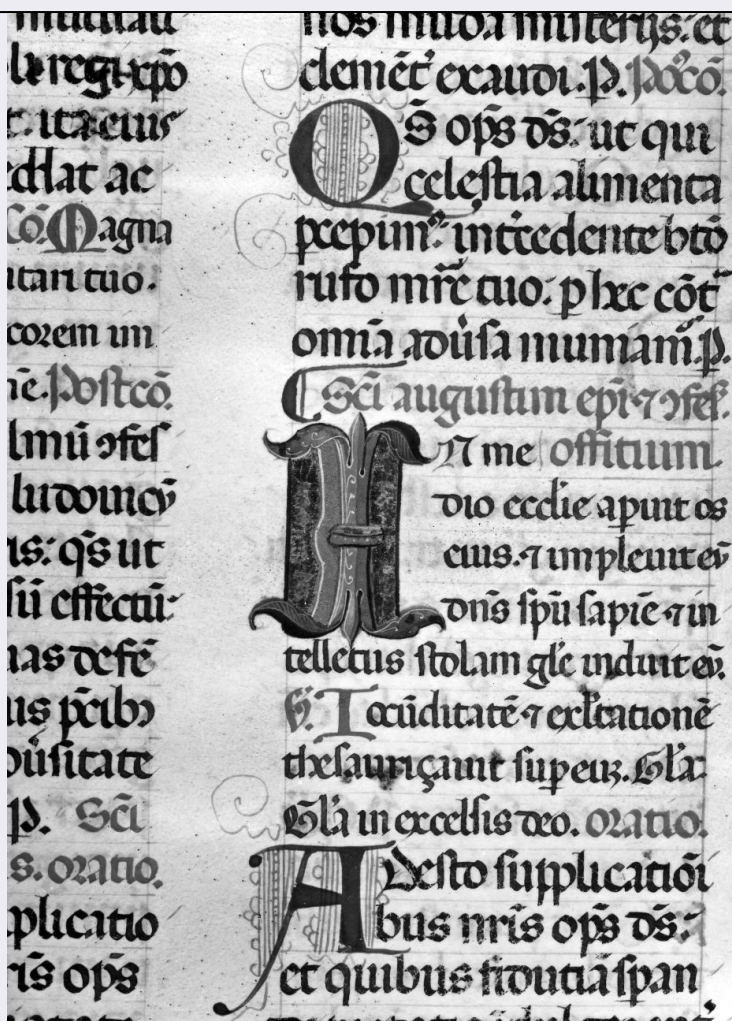 li regi xpo
t. ita eius
ac
Co. Magna
utari tuo.
corem in
ne. Postcō.
lmū ɔfes
ludouicū
is: qs ut
sū effectū
nas defē
us p̄cibꝫ
ūsitate
P. Sc̄i
s. oratio.
plicatio
ris op̄s
nos muda misterijs: et
clemēt' exaudi. P. Poˢcō.
Qs̄ op̄s ds̄: ut qui
celestia alimenta
p̄cepim⁹: int̄cedente bt̄o
rufo mr̄e tuo: p hec cōt̄
om̄ia adūsa muniam̄. P.
Sc̄i augustini ep̄i ⁊ ɔfes̄.
In me offitium
dio ecclīe apuit os
eius. ⁊ impleuit eū
dn̄s sp̄u sapīe ⁊ in
tellectus stolam gl̄e induit eū.
V. Iocūditatē ⁊ exl̄tationē
thesauriçauit sup eum. Gl̄a
Gl̄a in excelsis deo. oratio.
Adesto supplicatiōi
bus nr̄is op̄s ds̄:
et quibus fidutiā sp̄an